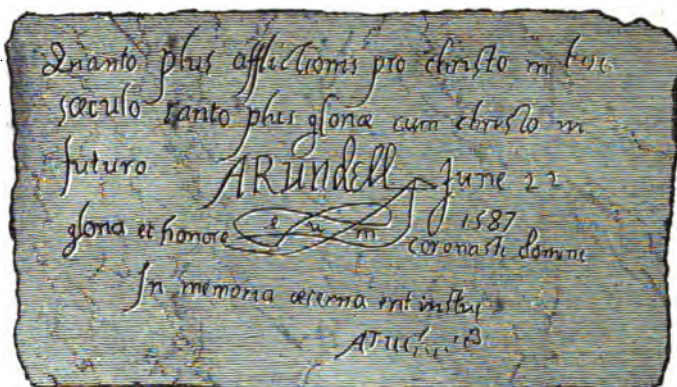 Quanto plus afflictionis pro christo in hoc
sæculo tanto plus gloriæ cum christo in
futuro ARUNDELL June 22
1587
gloria et honore e u m coronasti domine
In memoria æterna erit iustus